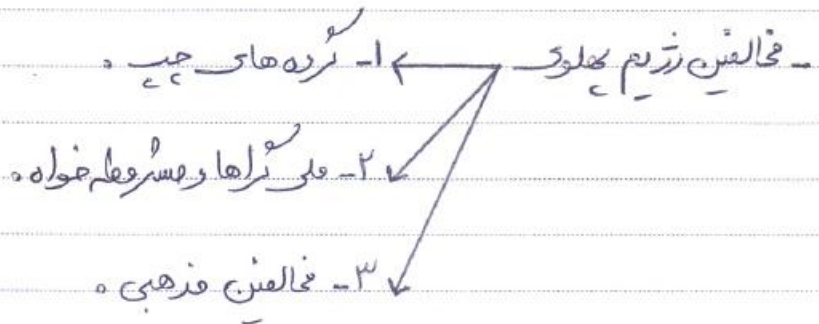 - مخالفین رژیم پهلوی
۱- گروه های چپ.
۲- ملی گراها و مشروطه خواه.
۳- مخالفین مذهبی.